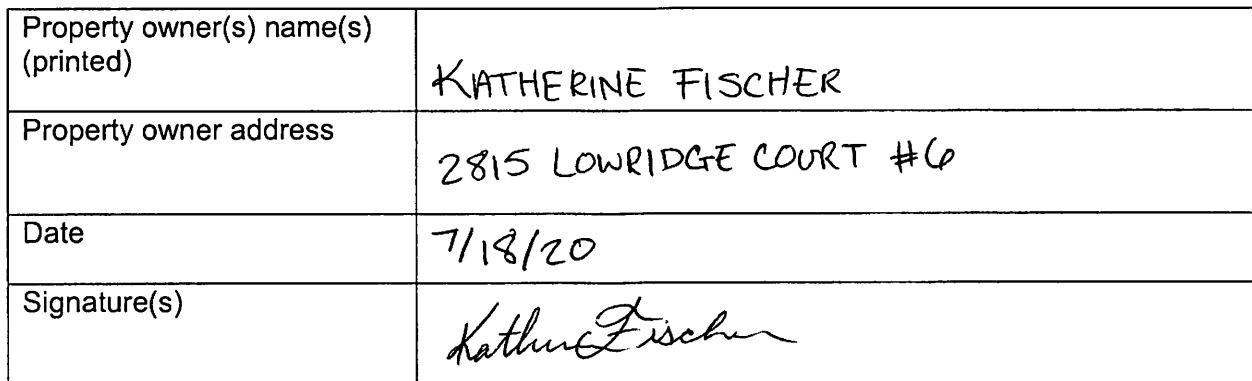 Property owner(s) name(s)
(printed)
KATHERINE FISCHER
Property owner address
2815 LOWRIDGE COURT #6
Date
7/18/20
Signature(s)
Katherine Fischer